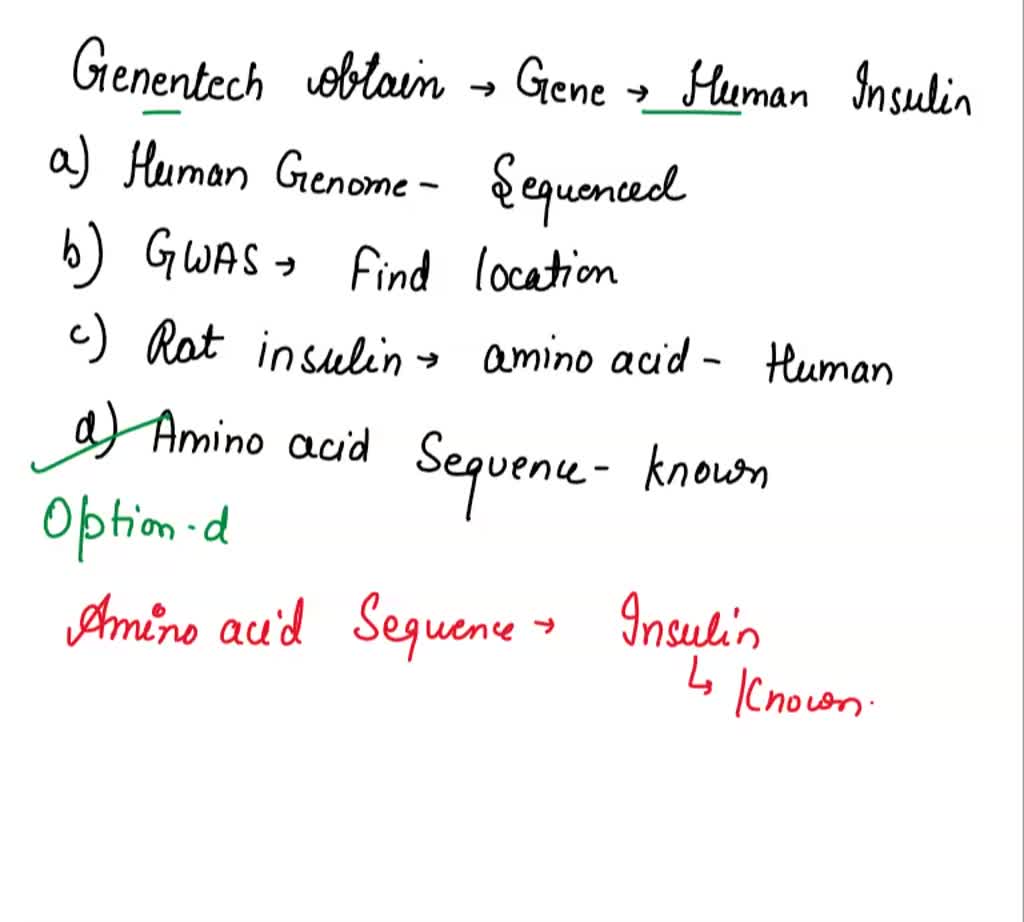 Genentech obtain → Gene → Human Insulin
a) Human Genome - Sequenced
b) GWAS → Find location
c) Rat insulin → amino acid - Human
d) Amino acid Sequence - known
Option - d
Amino acid Sequence → Insulin
↳ Known.